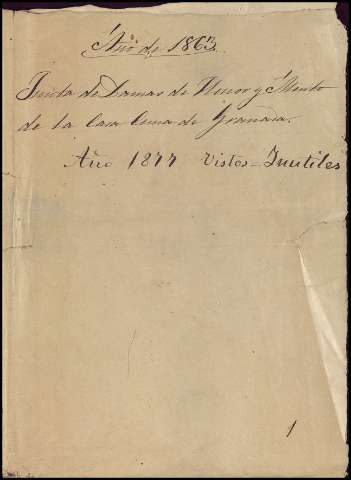 Año de 1863.
Junta de Damas de Honor y Mérito
de la Casa Cuna de Granada.
Año 1877 Vistos = Inutiles
1